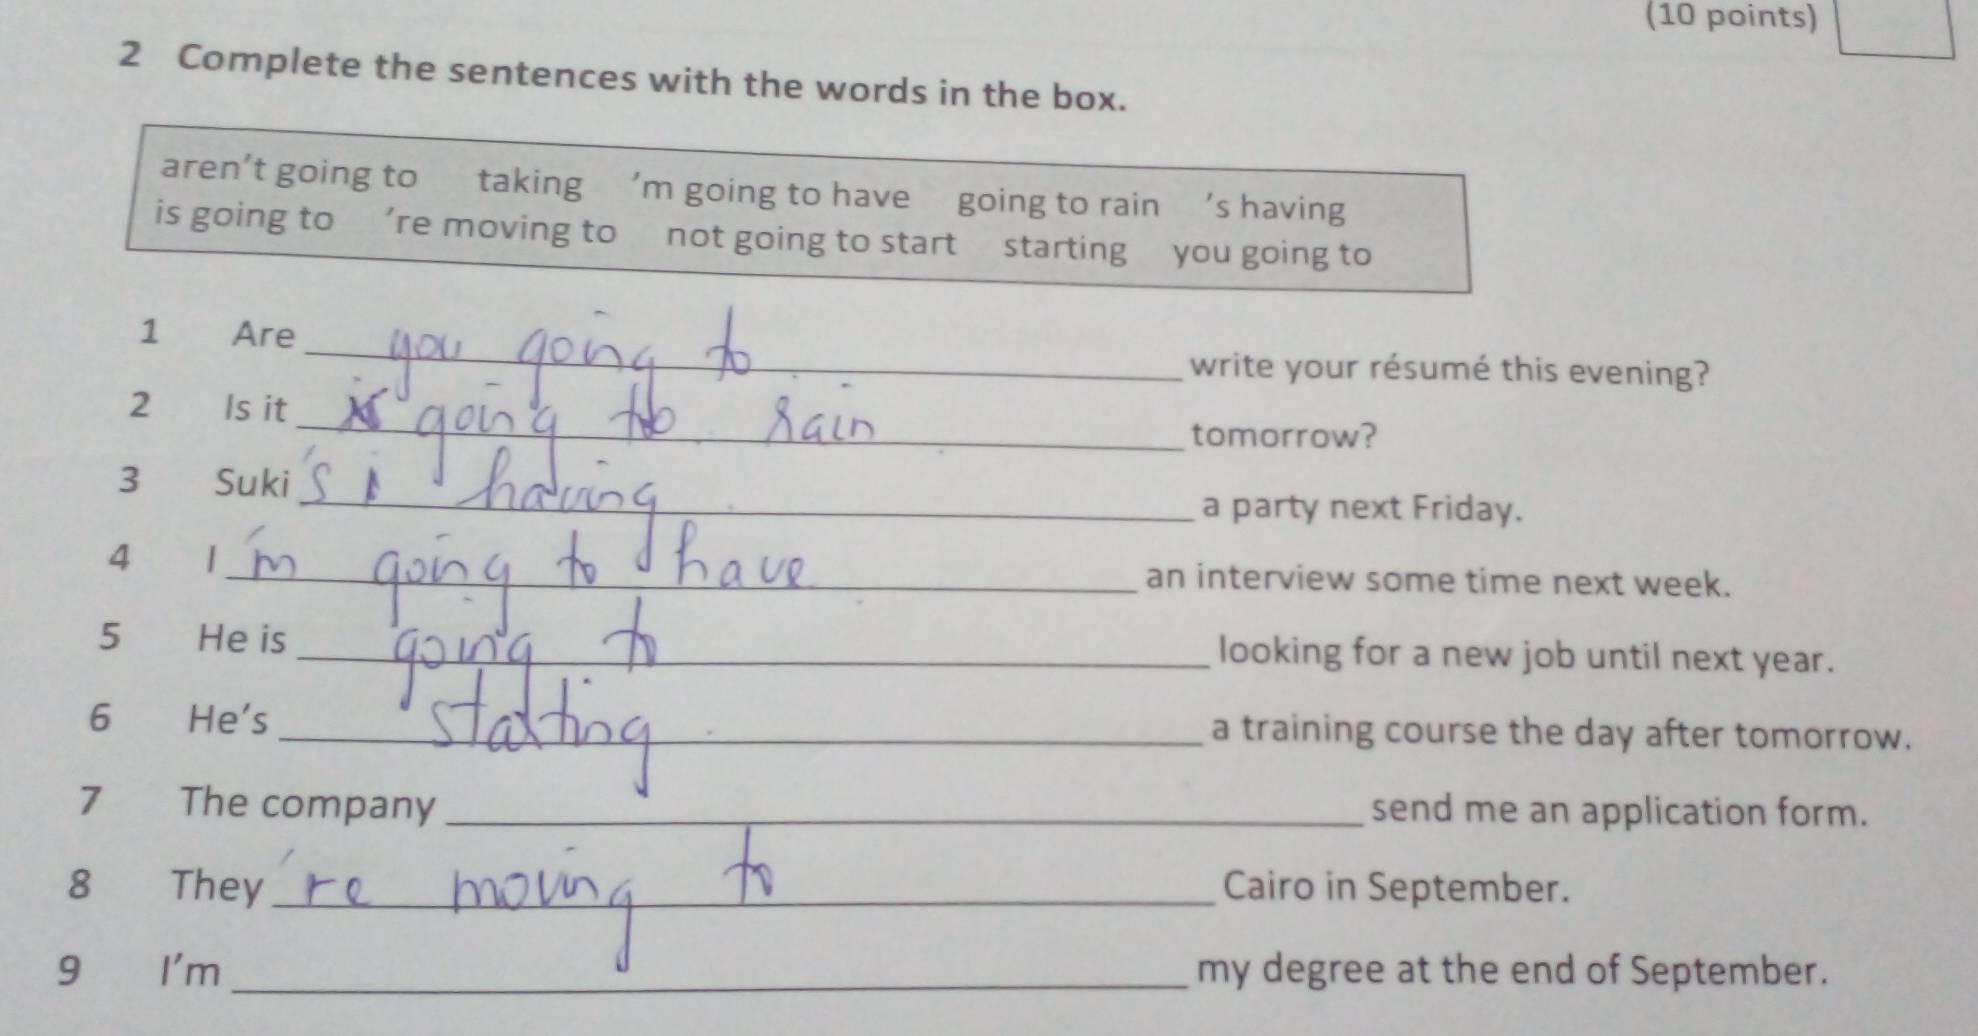 (10 points)
2 Complete the sentences with the words in the box.
aren't going to taking 'm going to have going to rain 's having
is going to 're moving to not going to start starting you going to
1 Are you going to write your résumé this evening?
2 Is it going to rain tomorrow?
3 Suki 's having a party next Friday.
4 I 'm going to have an interview some time next week.
5 He is going to looking for a new job until next year.
6 He's starting a training course the day after tomorrow.
7 The company send me an application form.
8 They 're moving to Cairo in September.
9 I'm my degree at the end of September.